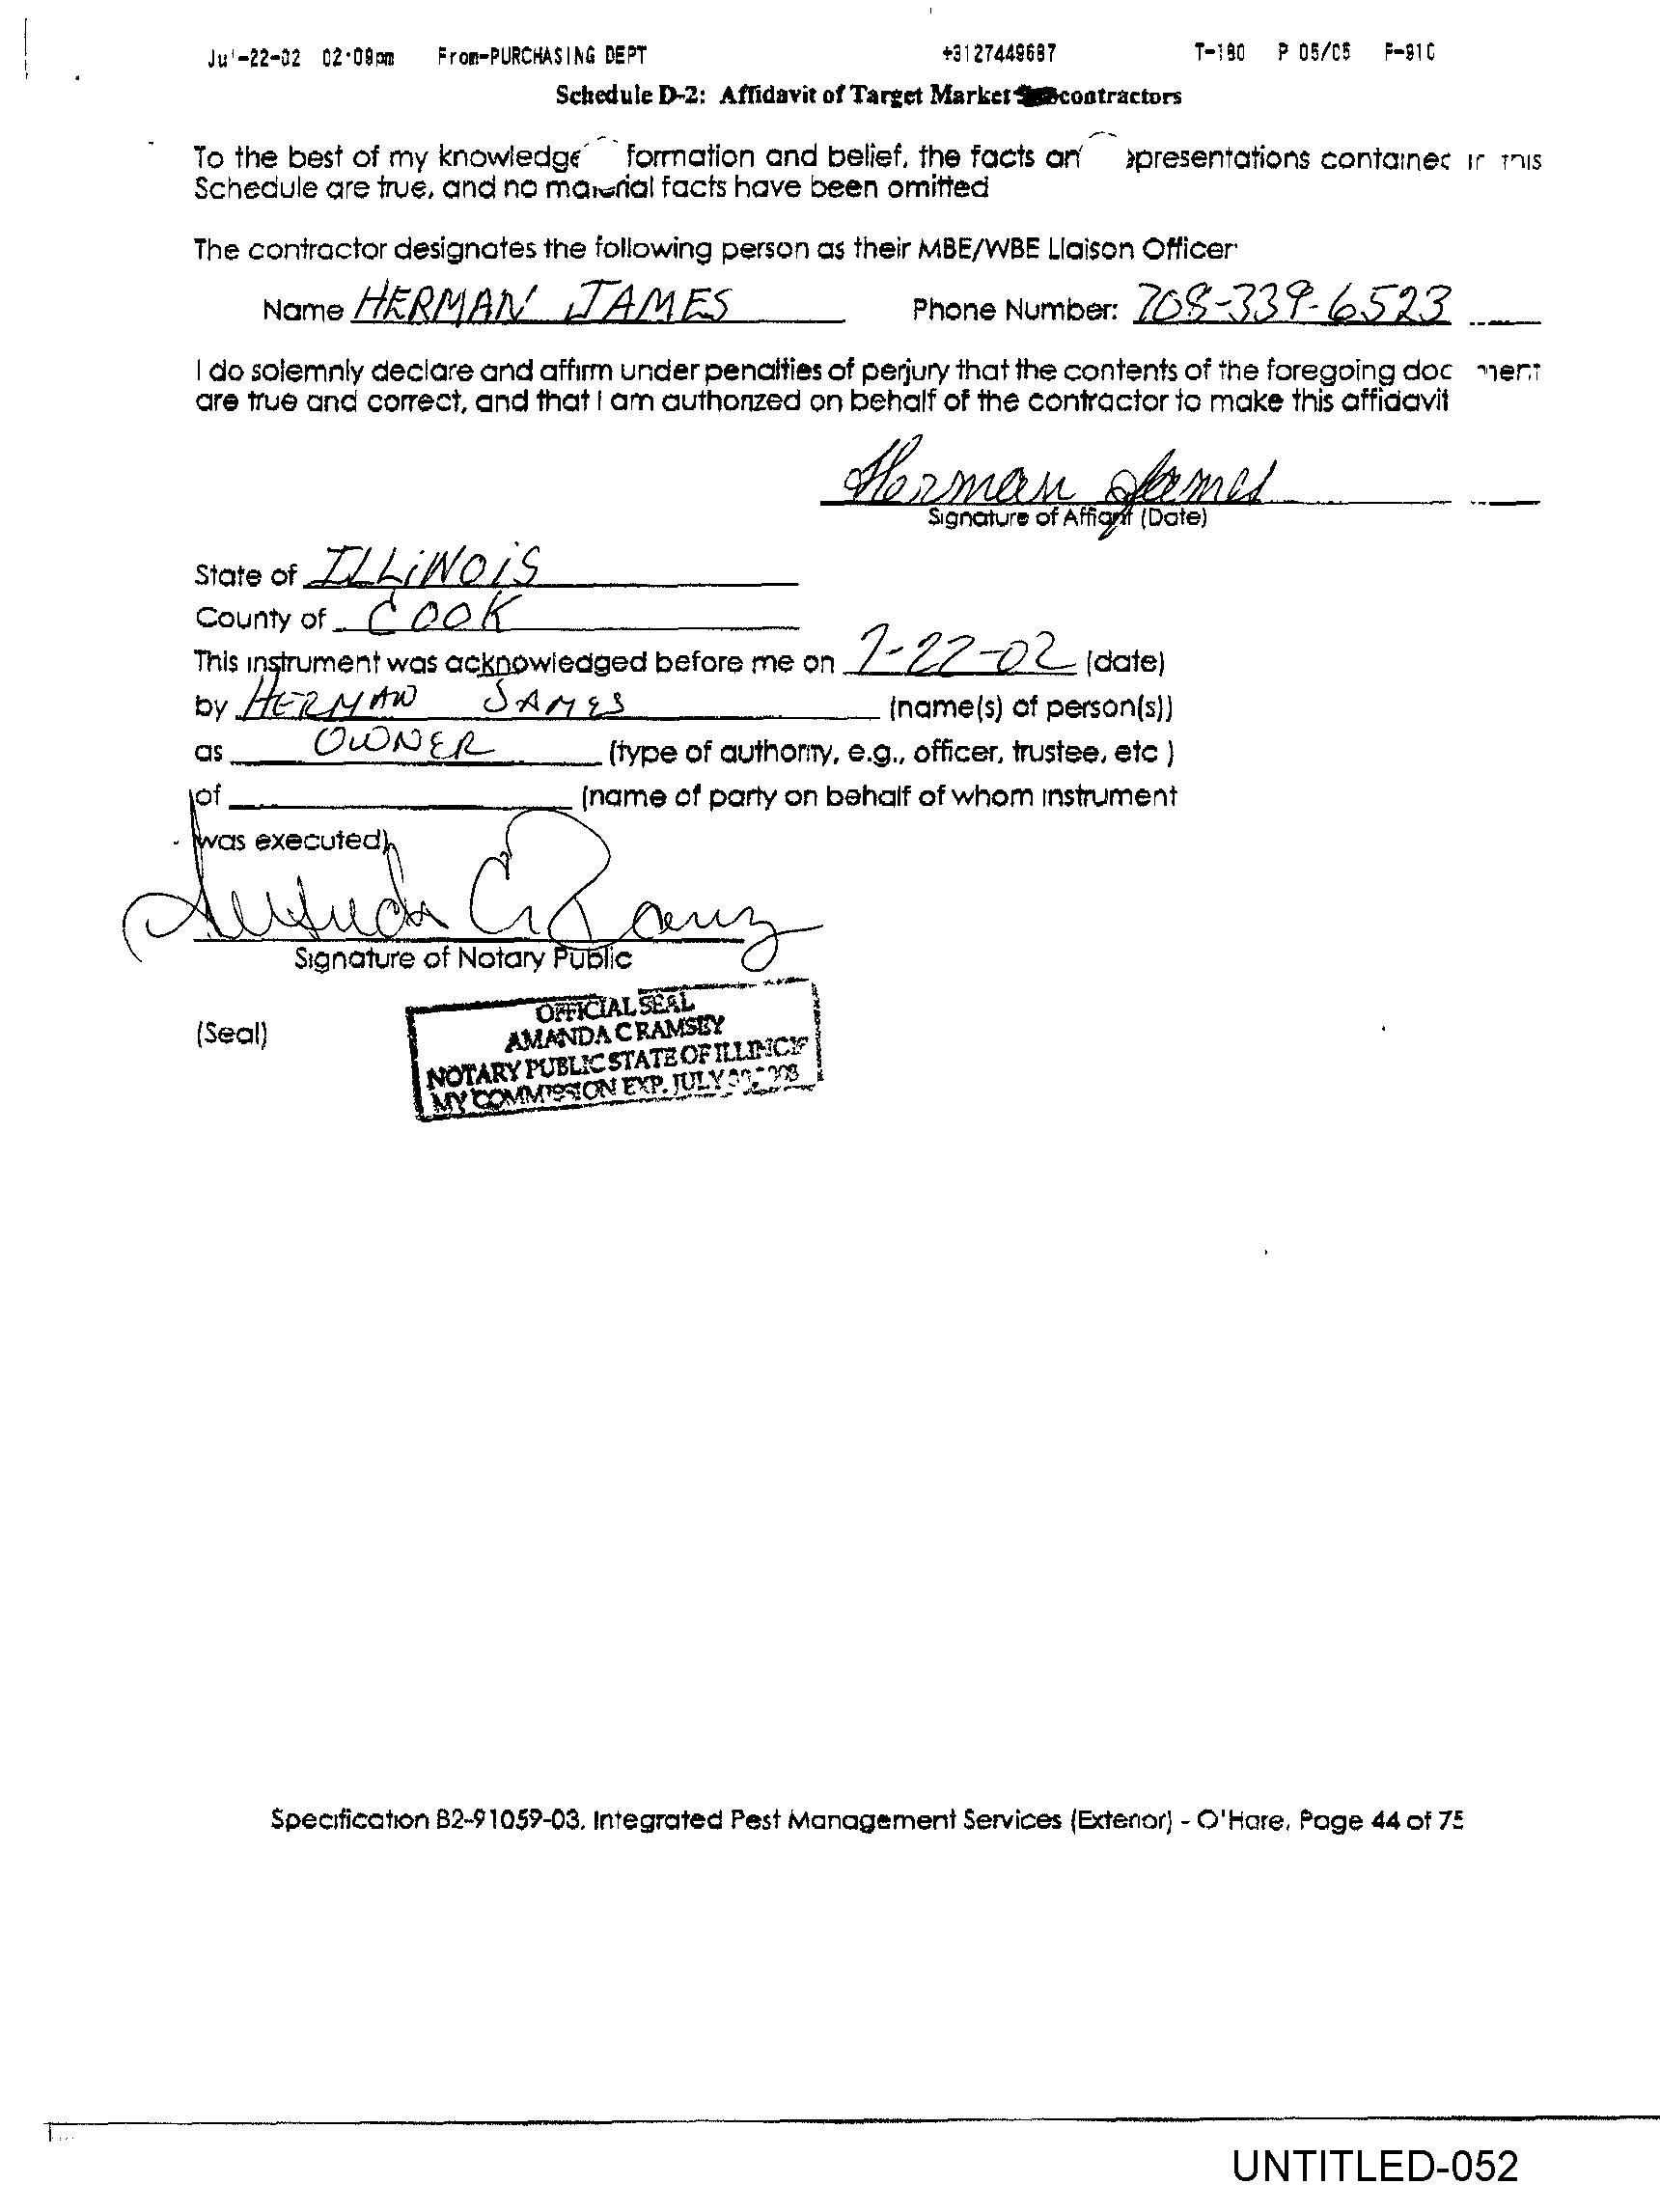 Jul-22-02 02:08pm From-PURCHASING DEPT +3127449687 T-180 P 05/05 F-910
Schedule D-2: Affidavit of Target Market contractors
To the best of my knowledge formation and belief, the facts an presentations contained in this
Schedule are true, and no material facts have been omitted
The contractor designates the following person as their MBE/WBE Liaison Officer
Name HERMAN JAMES Phone Number: 708-339-6523
I do solemnly declare and affirm under penalties of perjury that the contents of the foregoing doc ment
are true and correct, and that I am authorized on behalf of the contractor to make this affidavit
Herman James
Signature of Affiant (Date)
State of ILLINOIS
County of COOK
This instrument was acknowledged before me on 7-22-02 (date)
by HERMAN JAMES (name(s) of person(s))
as OWNER (type of authority, e.g., officer, trustee, etc )
of (name of party on behalf of whom instrument
was executed)
Signature of Notary Public
(Seal)
OFFICIAL SEAL
AMANDA C RAMSEY
NOTARY PUBLIC STATE OF ILLINOIS
MY COMMISSION EXP. JULY
Specification B2-91059-03, Integrated Pest Management Services (Exterior) - O'Hare, Page 44 of 75
UNTITLED-052